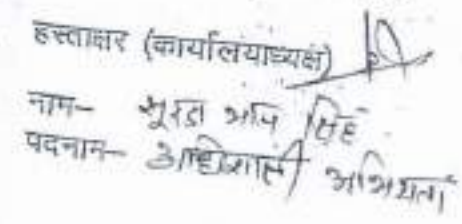 हस्ताक्षर (कार्यालयाध्यक्ष)
नाम- सिंह
पदनाम- अधिशासी अभियंता